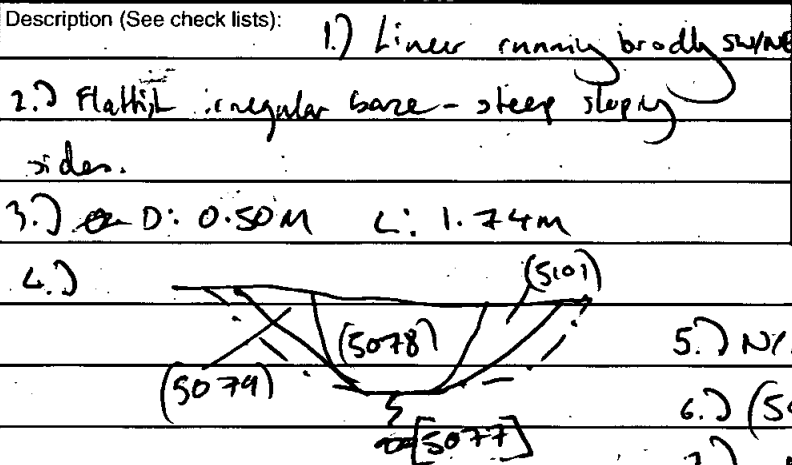 Description (See check lists):
1.) Linear running brodly SW/NE
2.) Flattish irregular base - steep sloping
sides.
3.) D: 0.50M L: 1.74m
4.)
(5101)
(5078)
5.) N/
(5079)
6.) (5
[5077]
7.)